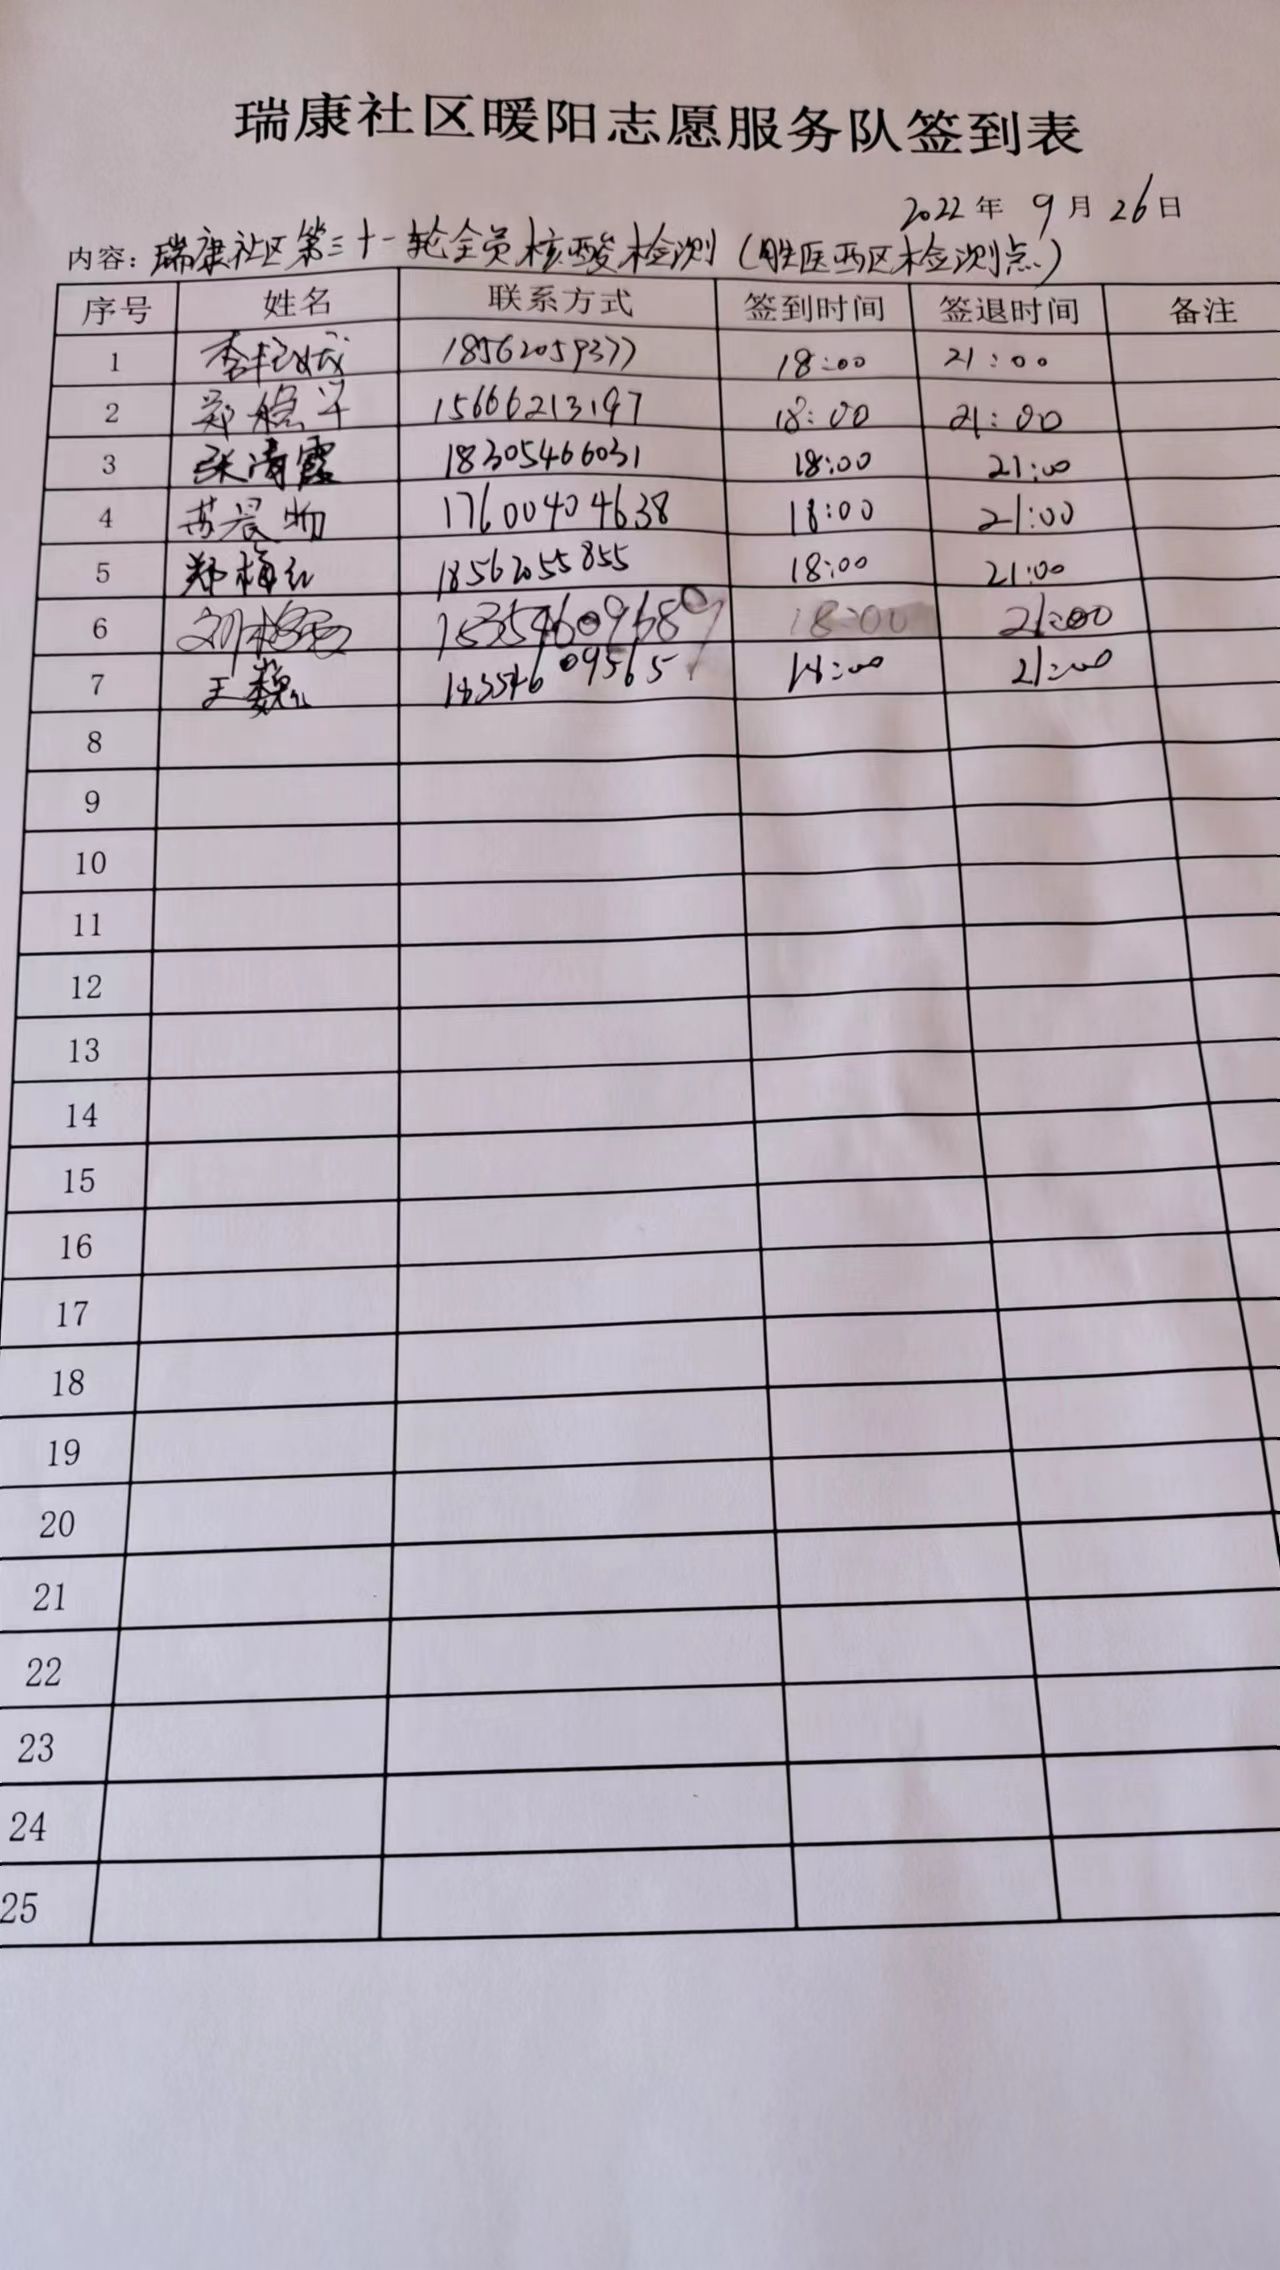 瑞康社区暖阳志愿服务队签到表
2022年 9月26日
内容：瑞康社区第三十一轮全员核酸检测（胜医西区检测点）
序号 姓名 联系方式 签到时间 签退时间 备注
1 李 18562059377 18:00 21:00
2 郑 15666213197 18:00 21:00
3 张清霞 18305466031 18:00 21:00
4 苏晨 17600404638 18:00 21:00
5 郑梅红 18562055855 18:00 21:00
6 刘 18:00 21:00
7 王巍 18:00 21:00
8
9
10
11
12
13
14
15
16
17
18
19
20
21
22
23
24
25